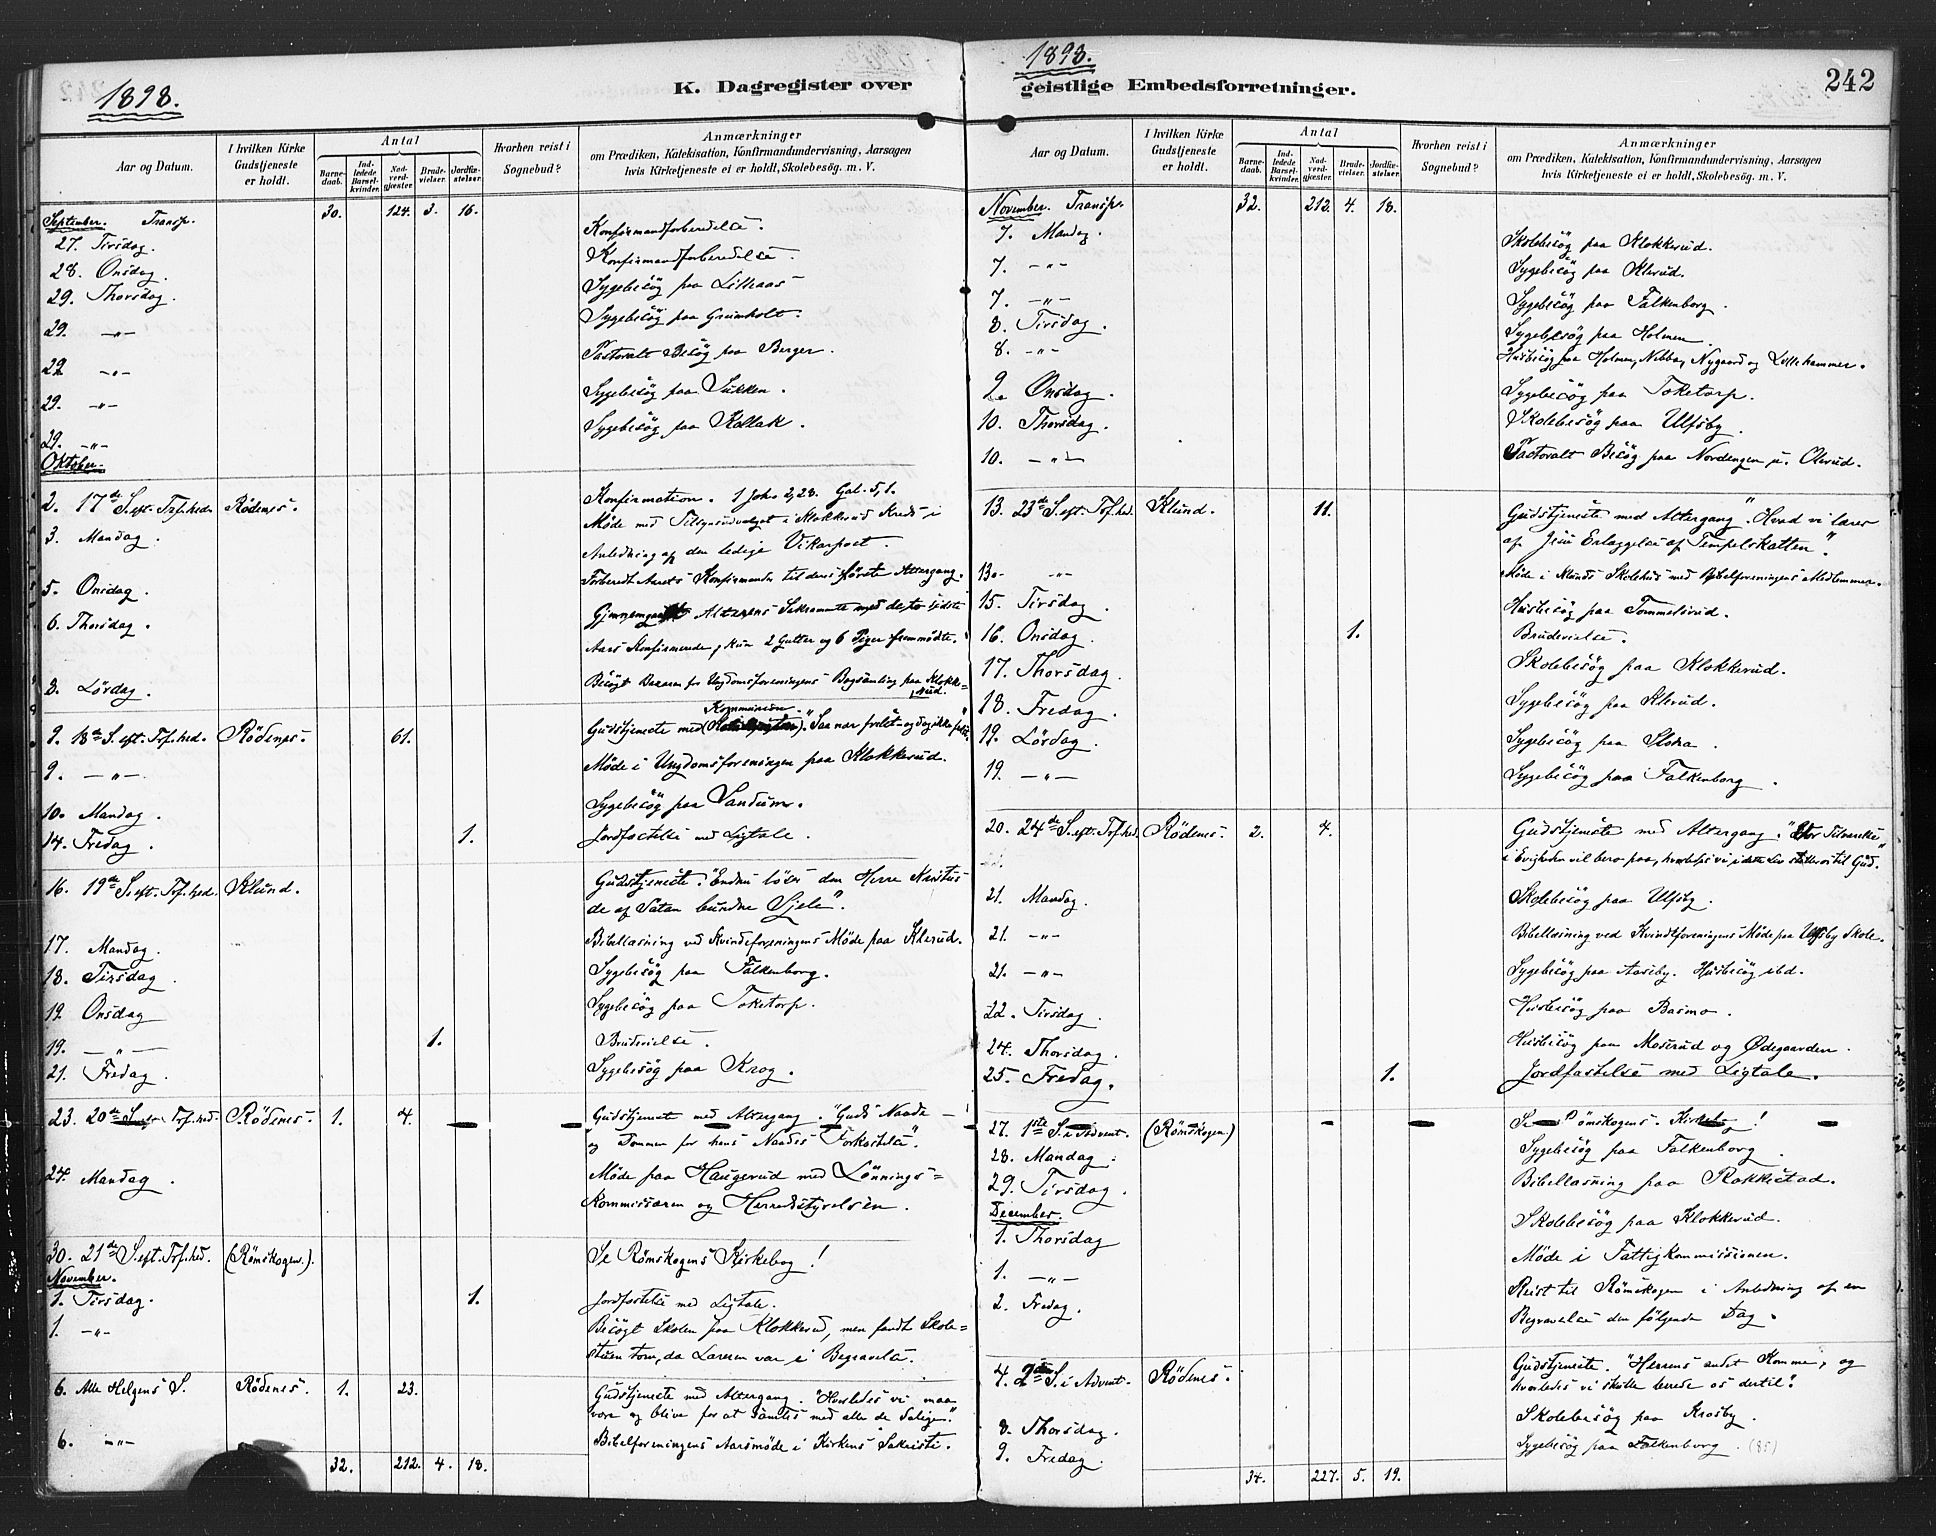 1898.
K. Dagregister over
Aar og Datum.
I hvilken Kirke Gudstjeneste er holdt.
Antal
Barne-daab.
Ind-ledede Barsel-kvinder.
Nad-verd-gjæster.
Brude-vielser.
Jordfæ-stelser.
Hvorhen reist i Sognebud?
Anmærkninger
om Prædiken, Katekisation, Konfirmandundervisning, Aarsagen
hvis Kirketjeneste ei er holdt, Skolebesøg. m. V.
September. Transp. 30. 124. 3. 16.
27. Tirsdag. Konfirmandforberedelse.
28. Onsdag. Konfirmandforberedelse.
29. Thorsdag. Sygebesög paa Lillaas.
29. -„- Sygebesög paa Grimholt.
29 -„- Pastoralt Besög paa Berger.
29. -„- Sygebesög paa Sukken.
29. -„- Sygebesög paa Kollak.
Oktober.
2. 17de S. eft. Trf.hed. Rödenes. Konfirmation. 1 Joh. 2,28. Gal. 5,1.
3. Mandag. Møde med Tilsynsudvalget i Klokkerud Kreds i
Anledning af den ledige Vikarpost.
5. Onsdag. Forberedt Aarets Konfirmander til deres første Altergang.
6. Thorsdag. Alterens Sakramente med de to sidste
Aars Konfirmerede, kun 2 Gutter og 6 Piger fremmödte.
8. Lördag. Besögt Basaren for Ungdomsforeningens Bogsamling paa Klokke-
rud.
Kommunion.
9. 18de S. eft. Trf.hed. Rödenes. 61. Gudstjeneste med . "Saa nær frelst - og dog ikke frelst."
9. -„- Møde i Ungdomsforeningen paa Klokkerud.
10. Mandag. Sygebesög paa Sandum.
14. Fredag. 1. Jordfæstelse med Ligtale.
16. 19de S. eft. Trf.hed. Klund. Gudstjeneste. "Endnu löser den Herre Kristus
de af Satan bundne Sjele".
17. Mandag. Bibellæsning ved Kvindeforeningens Møde paa Klerud.
18. Tirsdag Sygebesög paa Falkenborg.
19. Onsdag Sygebesög paa Toketorp.
19. -„- 1. Brudevielse.
21. Fredag. Sygebesög paa Krog.
23. 20de S. eft. Trf.hed. Rödenes. 1. 4. Gudstjeneste med Altergang. "Guds Naade -
og Dommen for hans Naades Forkastelse".
24. Mandag. Møde paa Haugerud med Lönnings=
kommissæren og Herredsstyrelsen.
30. 21de S. eft. Trf.hed. (Römskogen.). Se Römskogens Kirkebog!
November.
1. Tirsdag. 1. Jordfæstelse med Ligtale.
1. -„- Besögt Skolen paa Klokkerud, men fandt Skole=
stuen tom, da Læreren var i Begravelse.
6. Alle Helgens S. Rödenes. 1. 23. Gudstjeneste med Altergang. "Hvorledes vi maa
være og blive for at samles med alle de Salige."
6. -„- Bibelforeningens Aarsmøde i Kirkens Sakristi.
32. 212. 4. 18.
1898.
geistlige Embedsforretninger.
242
Aar og Datum.
I hvilken Kirke Gudstjeneste er holdt.
Antal
Barne-daab.
Ind-ledede Barsel-kvinder.
Nad-verd-gjæster.
Brude-vielser.
Jordfæ-stelser.
Hvorhen reist i Sognebud?
Anmærkninger
om Prædiken, Katekisation, Konfirmandundervisning, Aarsagen
hvis Kirketjeneste ei er holdt, Skolebesøg. m. V.
November. Transp. 32. 212. 4. 18.
7. Mandag. Skolebesög paa Klokkerud.
7. -„- Sygebesög paa Klerud.
7. -„- Sygebesög paa Falkenborg.
8. Tirsdag. Sygebesög paa Holmen.
8. -„- Husbesög paa Holmen, Nibba, Nygaard og Lillehammer.
9. Onsdag. Sygebesög paa Toketorp.
10. Thorsdag. Skolebesög paa Ulfsby.
10. -„- Pastoralt Besög paa Nordengen u. Olerud.
13. 23de S. eft. Trf.hed. Klund. 11. Gudstjeneste med Altergang. "Hvad vi lærer
af Jesu Erlæggelse af Tempelskatten".
13. -„- Møde i Klunds Skolehus med Bibelforeningens Medlemmer.
15. Tirsdag. Husbesög paa Tommelsrud.
16. Onsdag. 1. Brudevielse.
17. Thorsdag. Skolebesög paa Klokkerud.
18. Fredag. Sygebesög paa Klerud.
19. Lördag. Sygebesög paa Slora.
19. -„- Sygebesög paa Falkenborg.
20. 24de S. eft. Trf.hed. Rödenes. 2. 4. Gudstjeneste med Altergang. " Tilværelse
i Evigheden vil bero paa, hvorledes vi i dette Liv stiller os til Gud."
21. Mandag. Skolebesög paa Ulfsby.
21. -„- Bibellæsning ved Kvindeforeningens Møde paa Ulfsby Skole.
21. -„- Sygebesög paa Aaseby. Husbesög ibd.
22. Tirsdag. Husbesög paa Basmo.
24. Thorsdag. Husbesög paa Moserud og Ødegaarden.
25. Fredag. 1. Jordfæstelse med Ligtale.
27. 1ste S. i Advent. (Römskogen.) Se Römskogens Kirkebog!
28. Mandag. Sygebesög paa Falkenborg.
29. Tirsdag. Bibellæsning paa Rakkestad.
December.
1. Thorsdag Skolebesög paa Klokkerud.
1. -„- Møde i Fattigkommissionen.
2. Fredag. Reist til Römskogen i Anledning af en
Begravelse den fölgende Dag.
4. 2den S. i Advent. Rödenes. Gudstjeneste. "Herrens andet Komme, og
hvorledes vi skulle berede os dertil".
8. Thorsdag. Skolebesög paa Krosby.
9. Fredag. Sygebesög paa Falkenborg. (85)
34. 227. 5. 19.